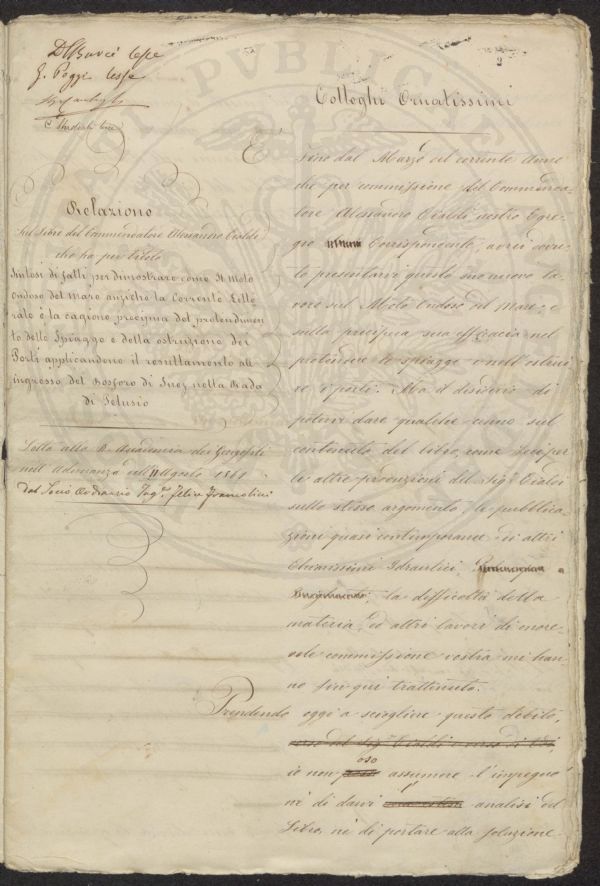 2
G. Poggi
Colleghi Ornatissimi
E
Fino dal Marzo del corrente Anno
che per commissione del Commenda-
tore Alessandro Cialdi nostro Egre-
gio Corrispondente, avrei dovu-
to presentarvi questo suo nuovo la-
voro sul Moto Ondoso del Mare, e
sulla precipua sua efficacia nel
protendere le spiagge e nell'ostrui-
re i porti. Ma il desiderio di
potervi dare qualche cenno sul
contenuto del libro, come feci per
le altre produzioni del Sigr. Cialdi
sullo stesso argomento, le pubblica-
zioni quasi contemporanee di altri
Chiarissimi Idraulici,
la difficoltà della
materia, ed altri lavori di onore-
vole commissione vostra mi han-
no fin qui trattenuto.
Prendendo oggi a sciogliere questo debito,
oso
io non assumere l'impegno
nè di darvi analisi del
Libro, nè di portare alla soluzione
Relazione
Sul Libro del Commendatore Alessandro Cialdi
che ha per titolo
Sintesi di fatti per dimostrare come il Moto
ondoso del mare anziche la Corrente Litto
rale è la cagione precipua del protendimen
to delle Spiagge e della ostruzione dei
Porti applicandone il resultamento all'
ingresso del Bosforo di Suez nella Rada
di Pelusio
Letta alla R. Accademia dei Georgofili
nell'Adunanza dell'11 Agosto 1861
dal Socio Ordinario Ing.e Felice Francolini